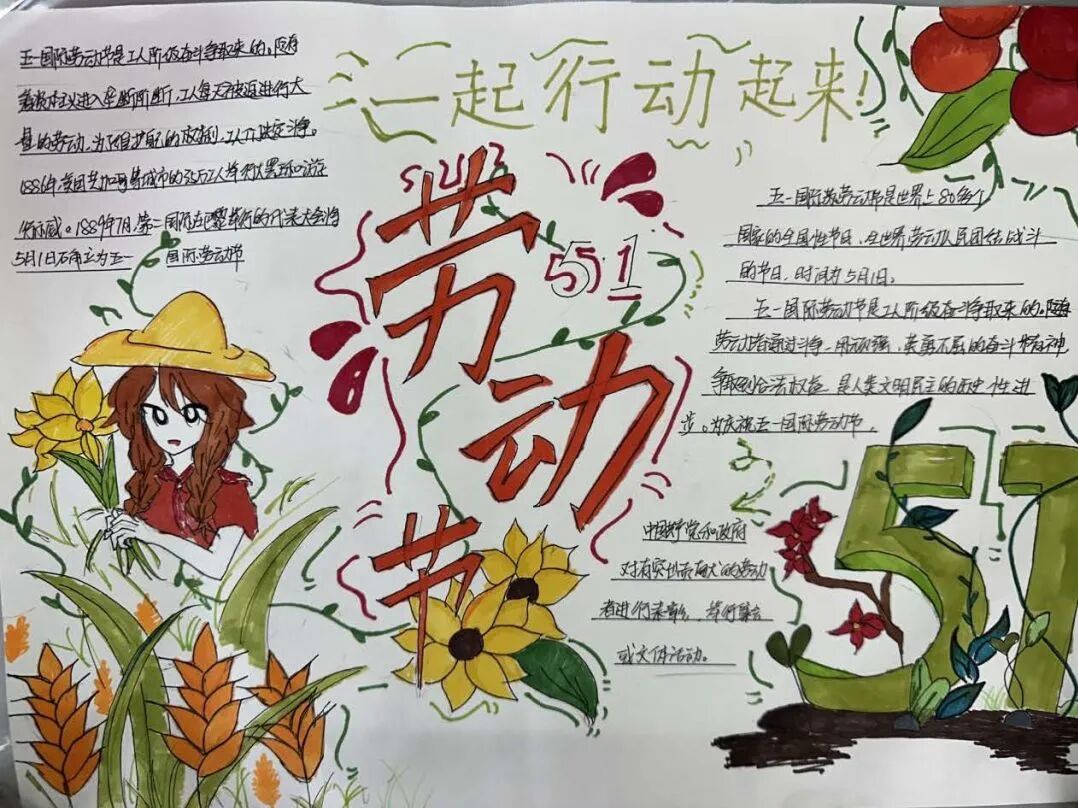 一起行动起来!
五一国际劳动节是工人阶级奋斗争取来的。随
着资本主义进入垄断阶断,工人每天被迫进行大
量的劳动,为了自己的权利,工人决定斗争。
1886年美国芝加哥等城市的35万工人举行大罢工和游
行示威。1889年7月,第二国际在巴黎举行的代表大会将
5月1日确立为五一 国际劳动节
劳动节
5 5.1
五一国际劳动节是世界上80多个
国家的全国性节日,全世界劳动人民团结战斗
的节日,时间为5月1日。
五一国际劳动节是工人阶级奋斗争取来的。随
劳动者通过斗争,用顽强、英勇不屈的奋斗精神
争取到合法权益,是人类文明民主的历史性进
步。为庆祝五一国际劳动节,
中国 党和政府
对有突出 的劳动
者进行表彰,举行集会
或文体活动。
51